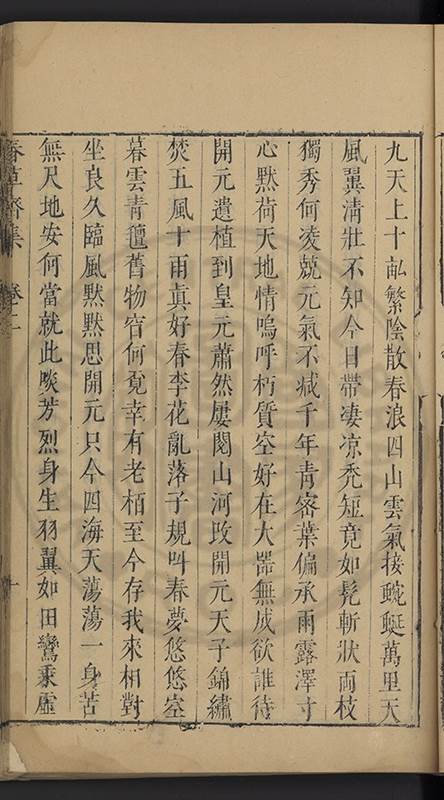 九天上十畝繁陰散春浪四山雲氣接蜿蜒萬里天
風翼清壯不知今日帶凄凉禿短竟如髡斬狀両枝
獨秀何凌兢元氣不减千年青宻葉偏承雨露澤寸
心黙荷天地情嗚呼朽質空好在大噐無成欲誰待
開元遺植到皇元蕭然屢閱山河改開元天子錦繡
焚五風十雨眞好春李花亂落子規呌春夢悠悠空
暮雲青氊舊物宿何覔幸有老栢至今存我來相對
坐良久臨風黙黙思開元只今四海天蕩蕩一身苦
無尺地安何當就此啖芳烈身生羽翼如田鸞乘虛
春草齋集 卷十一